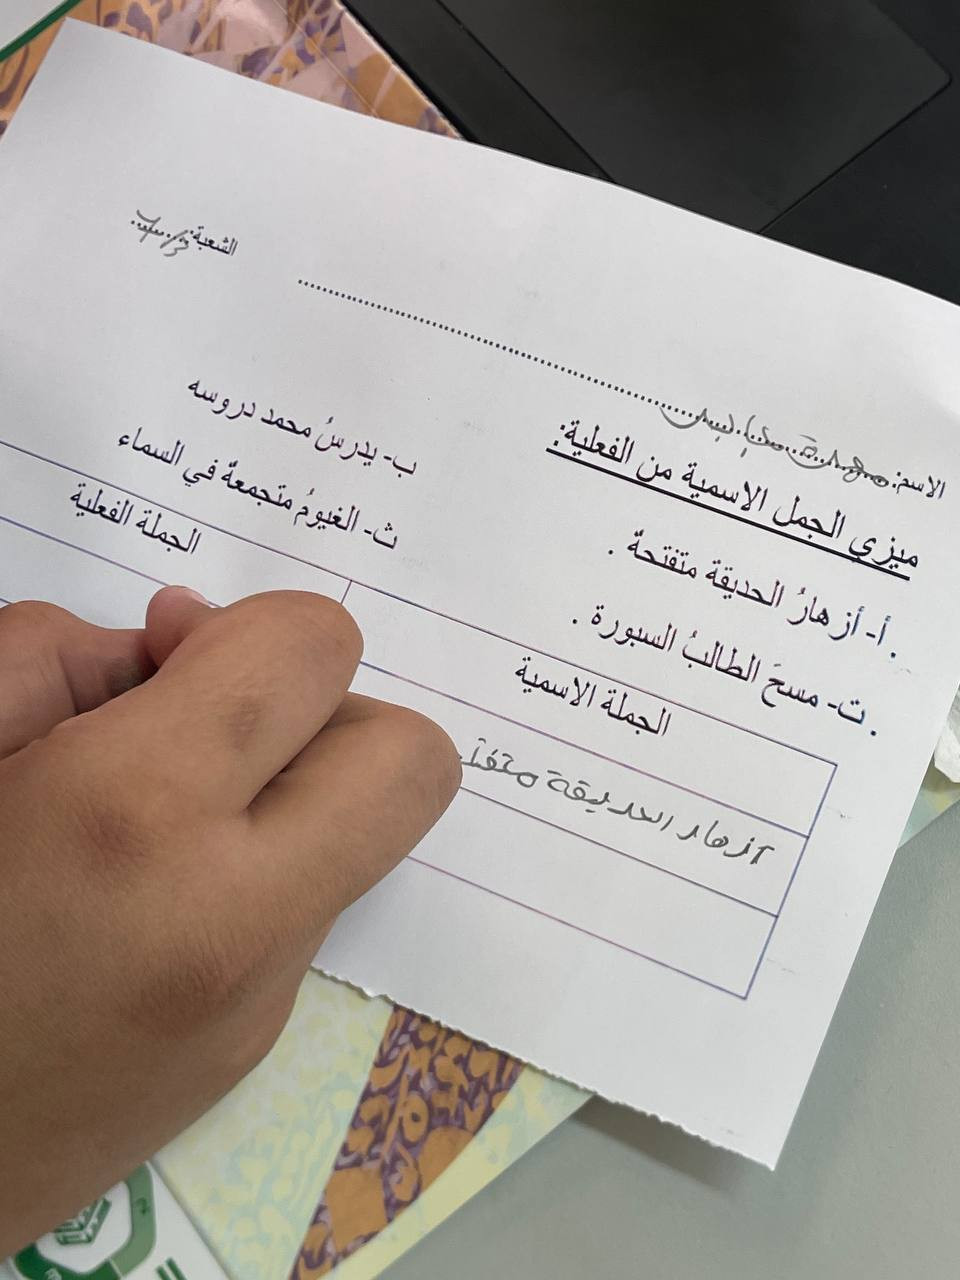 الاسم:
الشعبة: 3/
ميزي الجمل الاسمية من الفعلية:
أ- أزهارُ الحديقة متفتحةٌ .
ب- يدرسُ محمد دروسه
ت- مسحَ الطالبُ السبورة .
ث- الغيومُ متجمعةٌ في السماء
الجملة الاسمية
الجملة الفعلية
ازهار الحديقة